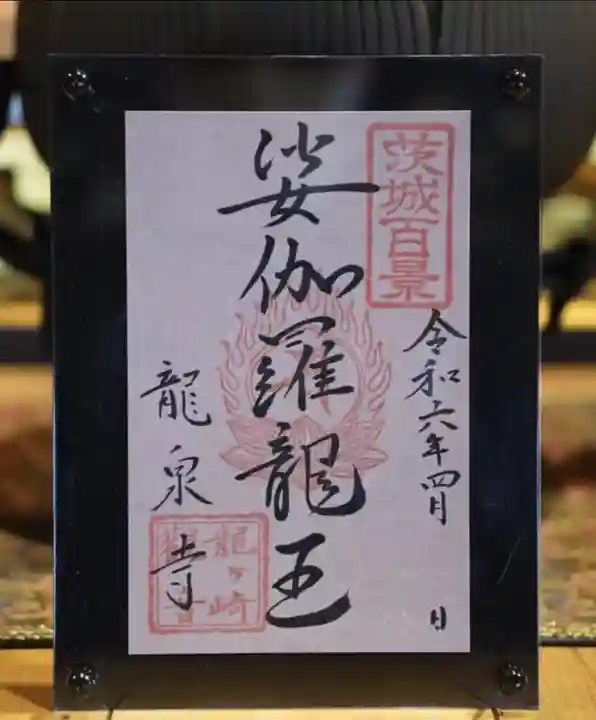 茨城百景
令和六年四月 日
娑伽羅龍王
龍泉寺
龍ヶ崎
観音